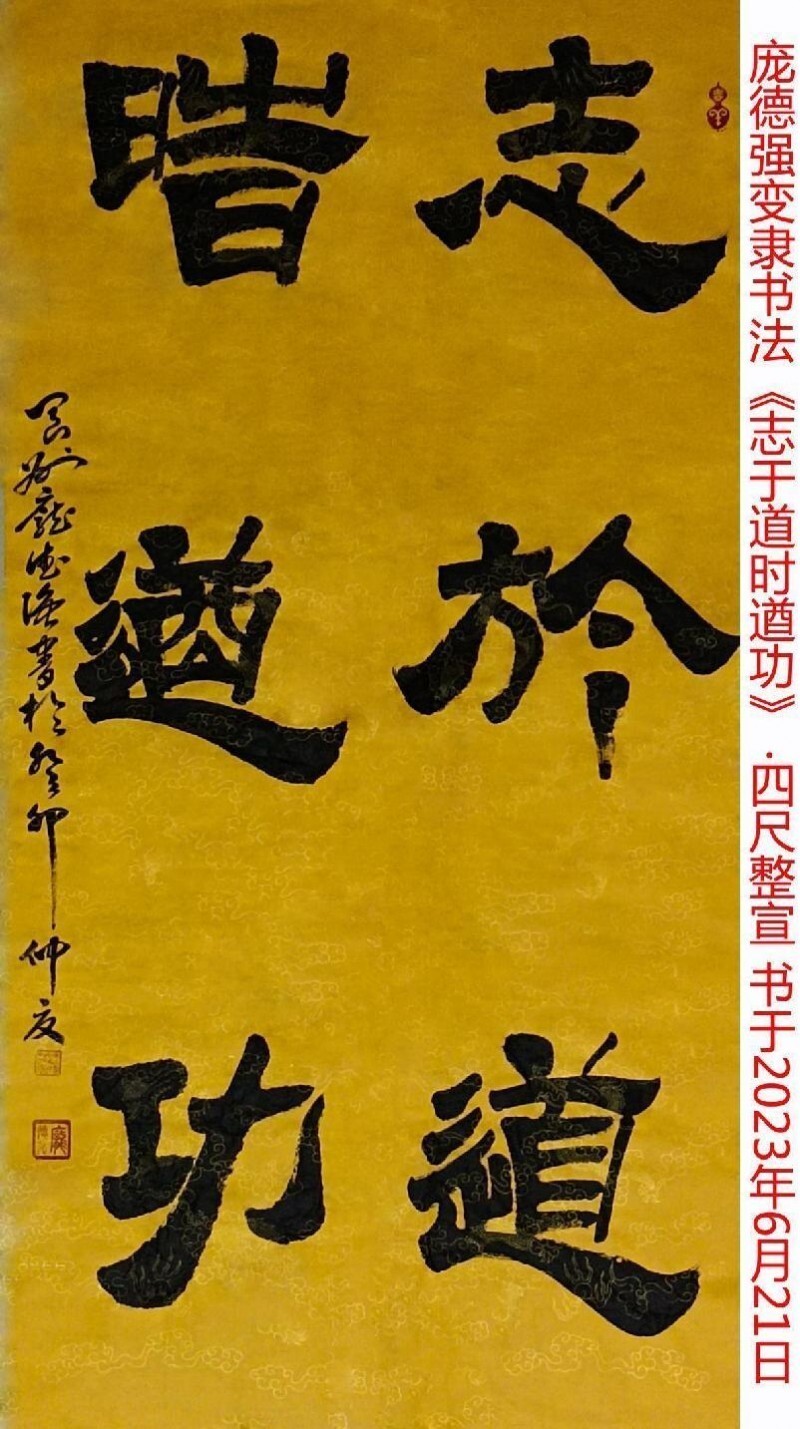 庞德强变隶书法 《志于道时遒功》 ·四尺整宣 书于2023年6月21日
志於道
時遒功
州龐德强書於癸卯仲夏